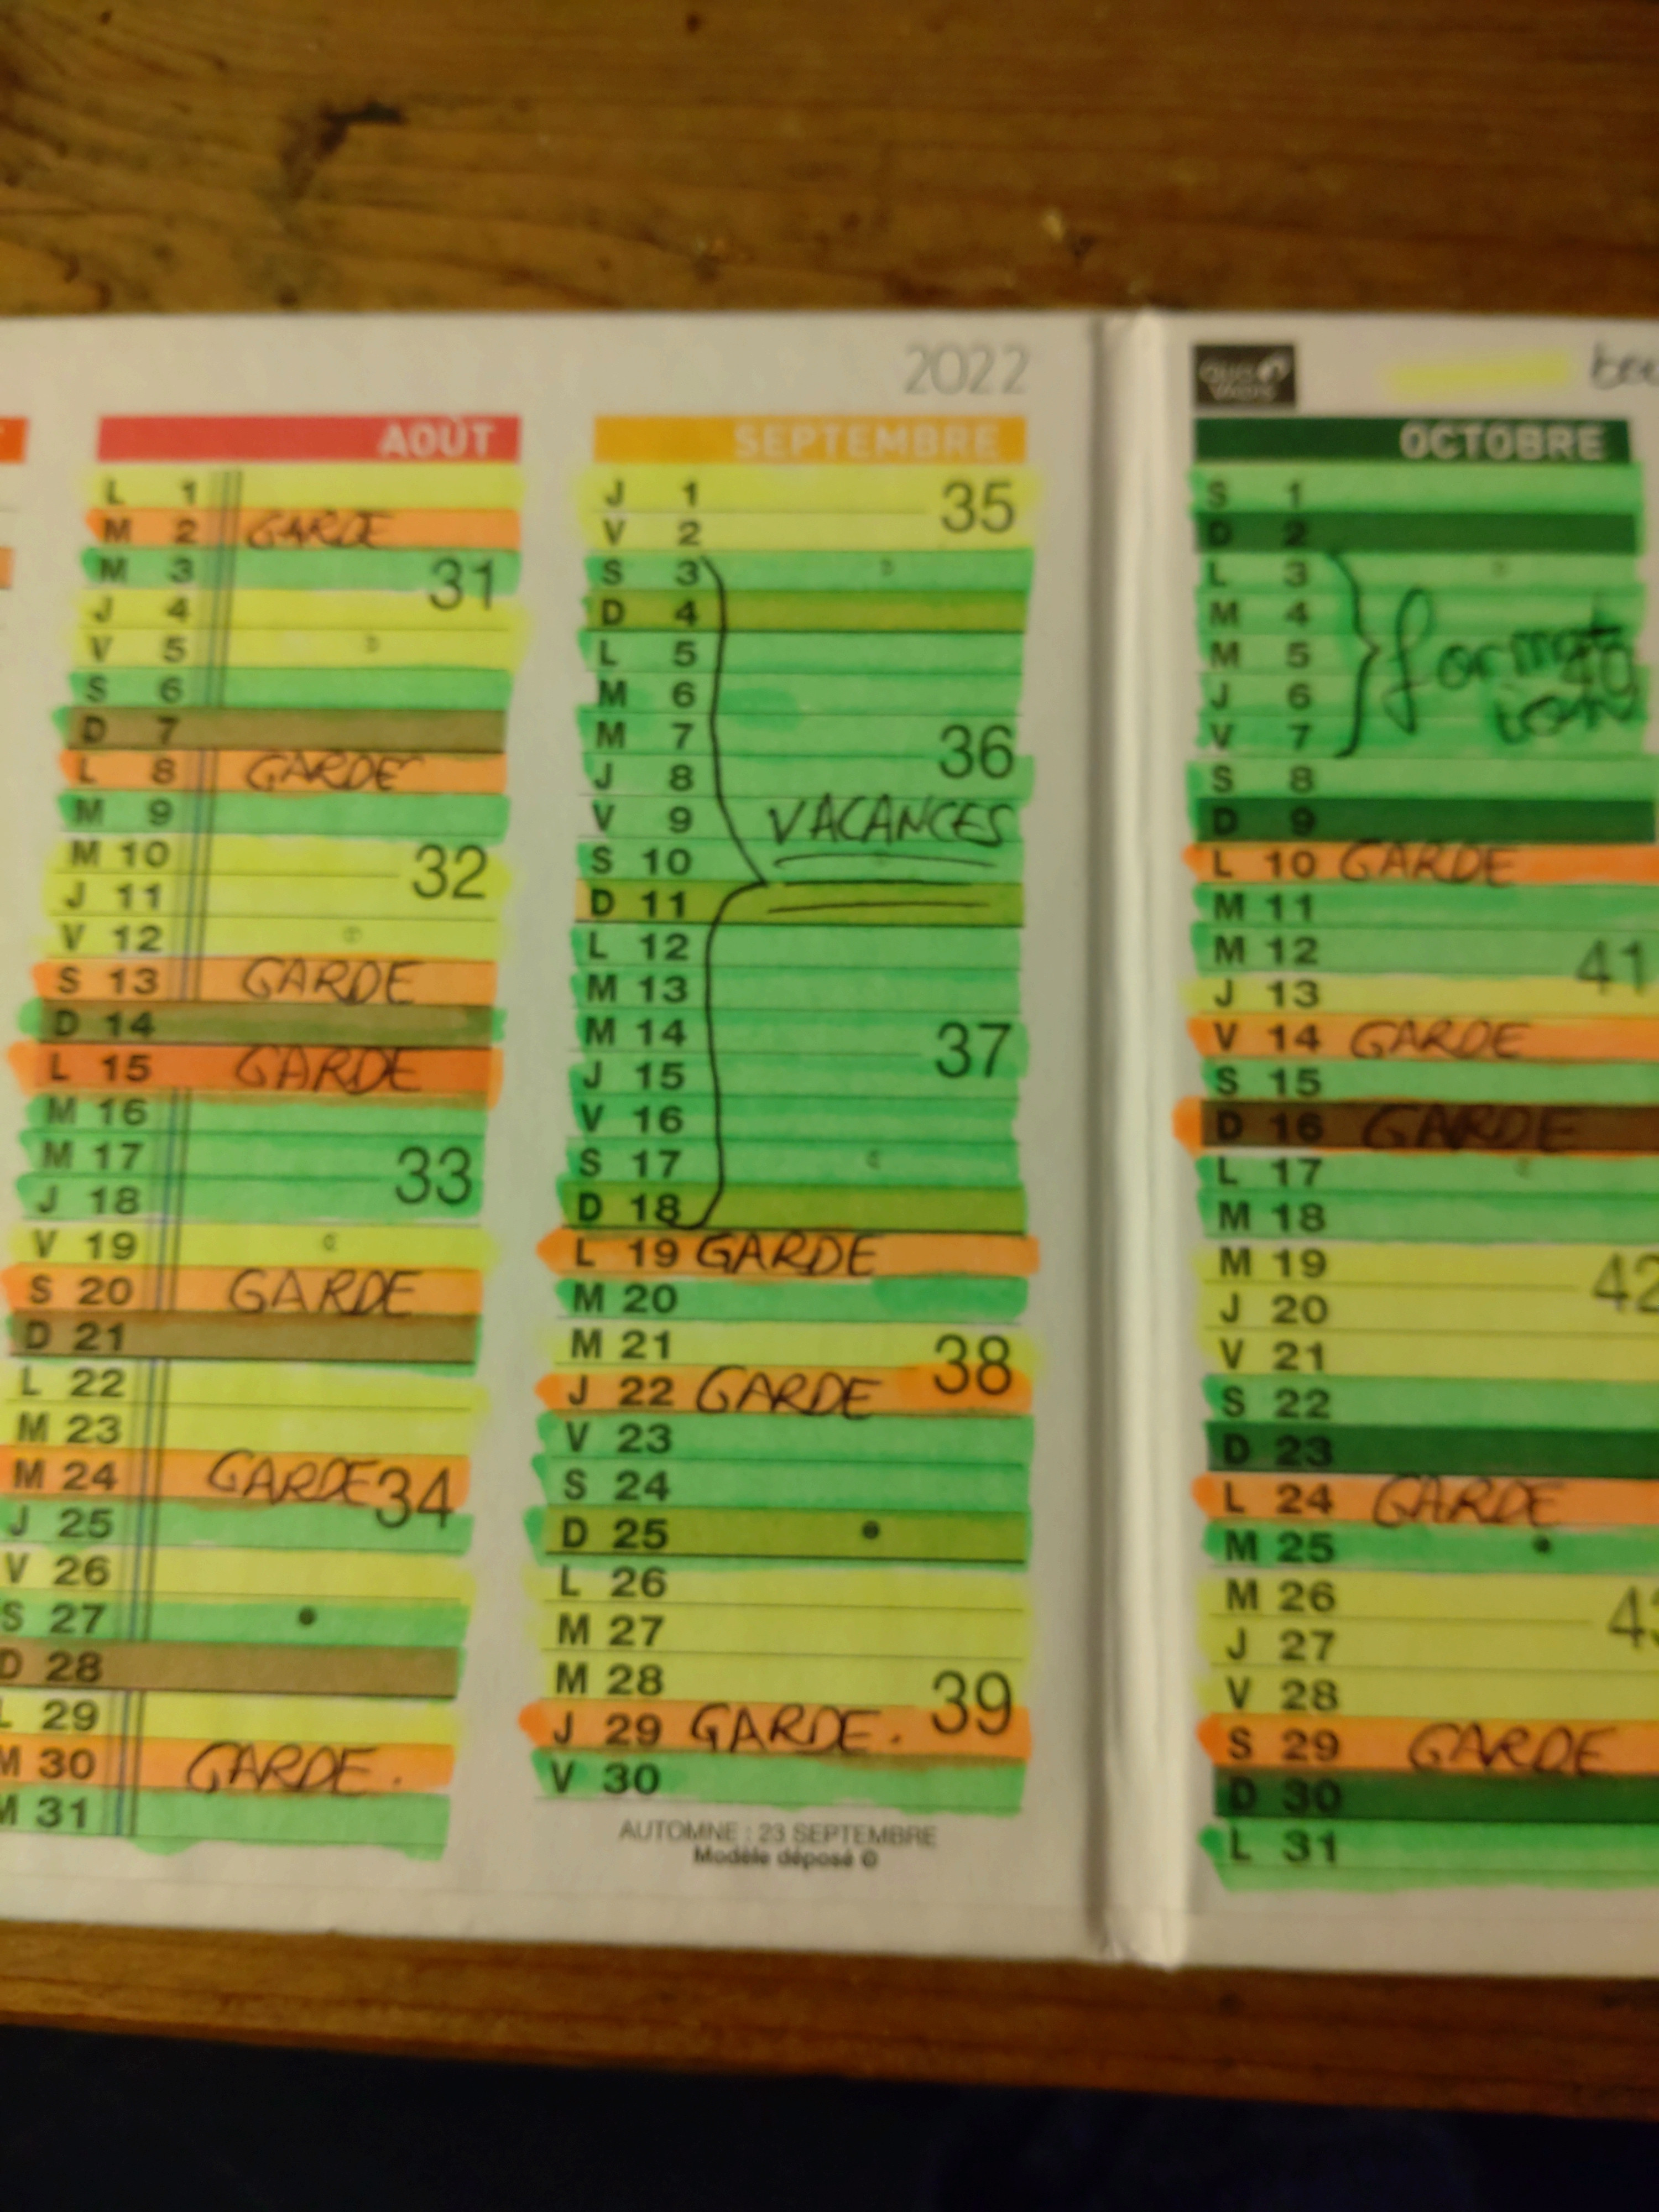 2022
AOÛT
L 1
M 2 GARDE
M 3 31
J 4
V 5
S 6
D 7
L 8 GARDE
M 9
M 10 32
J 11
V 12
S 13 GARDE
D 14
L 15 GARDE
M 16
M 17 33
J 18
V 19
S 20 GARDE
D 21
L 22
M 23
M 24 GARDE 34
J 25
V 26
S 27
D 28
L 29
M 30 GARDE.
M 31
SEPTEMBRE
J 1 35
V 2
S 3
D 4
L 5
M 6
M 7 36
J 8
V 9 VACANCES
S 10
D 11
L 12
M 13
M 14 37
J 15
V 16
S 17
D 18
L 19 GARDE
M 20
M 21 38
J 22 GARDE
V 23
S 24
D 25
L 26
M 27
M 28 39
J 29 GARDE.
V 30
AUTOMNE : 23 SEPTEMBRE
Modèle déposé ©
Quo Vadis
OCTOBRE
S 1
D 2
L 3
M 4
M 5 format 40
J 6 ion
V 7
S 8
D 9
L 10 GARDE
M 11
M 12 41
J 13
V 14 GARDE
S 15
D 16 GARDE
L 17
M 18
M 19 42
J 20
V 21
S 22
D 23
L 24 GARDE
M 25
M 26
J 27
V 28
S 29 GARDE
D 30
L 31